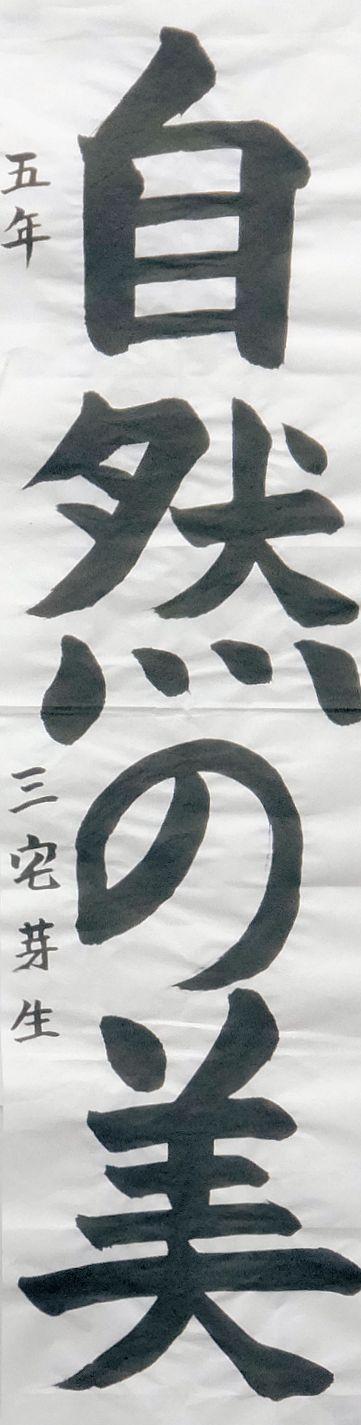 自然の美
五年 三宅芽生